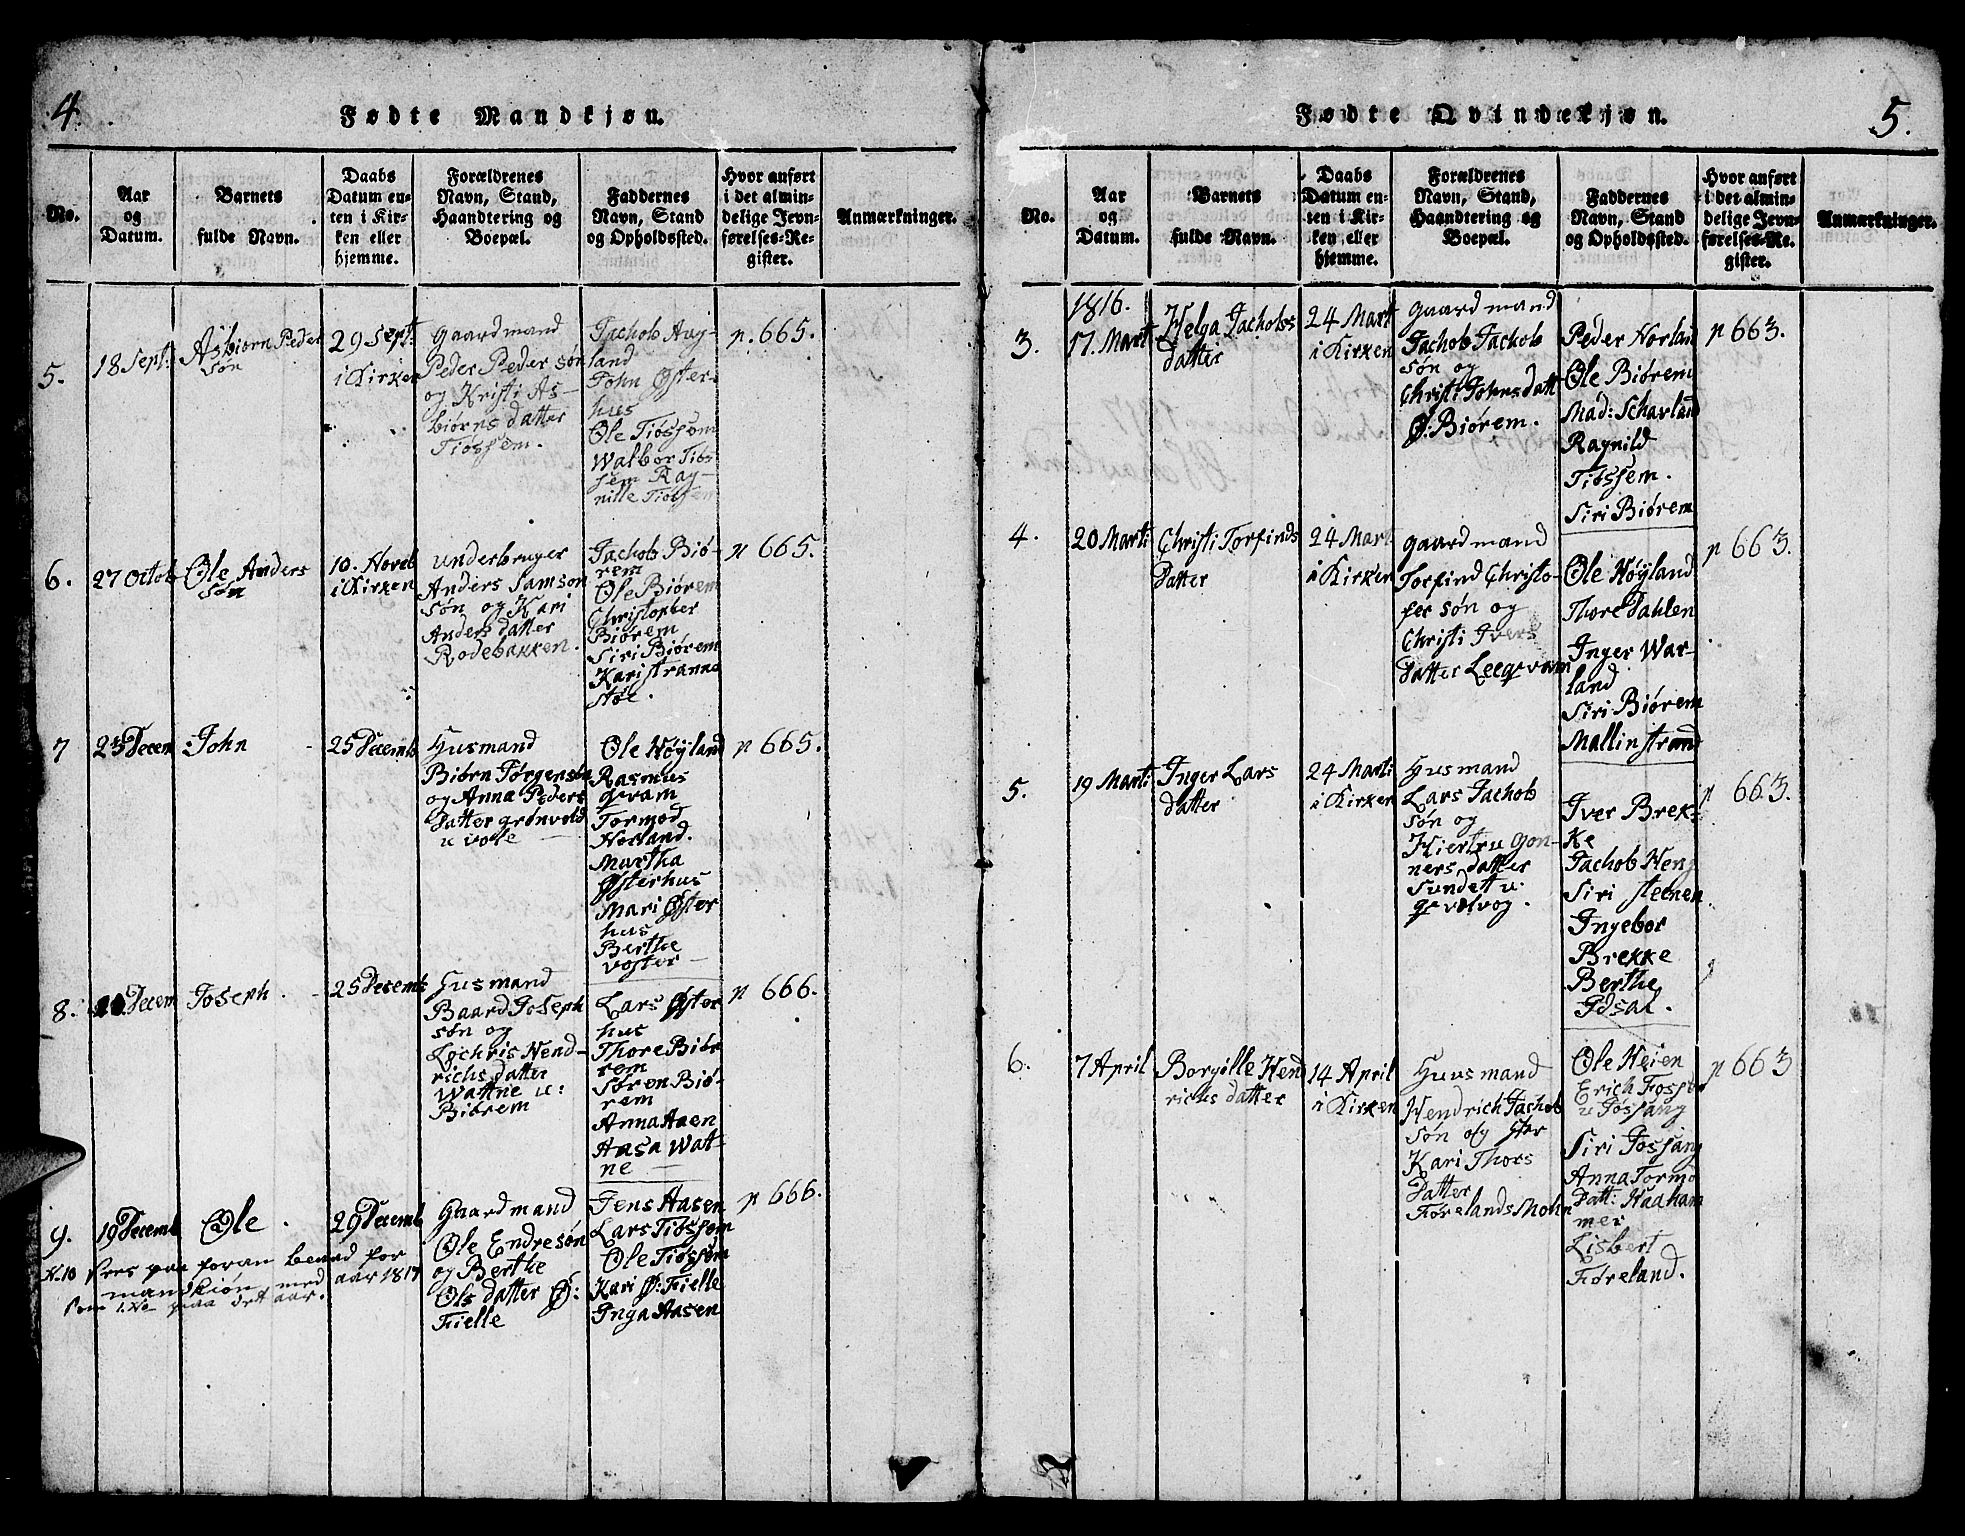 4.
Fødte Mandkjøn.
No.
Aar
og
Datum.
Barnets
fulde Navn.
Daabs
Datum en-
ten i Kir-
ken eller
hjemme.
Forældrenes
Navn, Stand,
Haandtering og
Boepæl.
Faddernes
Navn, Stand
og Opholdssted.
Hvor anført
i det almin-
delige Jevn-
førelses-Re-
gister.
Anmærkninger.
5.
18 Sept:
Asbiørn Peder
søn
29 Sept:
i Kirken
gaardmand
Peder Peder søn
og Kristi As-
biørns datter
Tiøssem.
Jachob Aug-
land
John Øster-
hus
Ole Tiøssem
Walbor Tiøs
sem Rag-
nille Tiøssem
p. 665.
6.
27 Octob
Ole Anders
søn
10. Noveb
i Kirken
underbruger
Anders Samson
søn og Kari
Anders datter
Rodebakken.
Jachob Biø-
rem
Ole Biørem
Christopher
Biørem
Siri Biørem
Kari stranne
støe.
p 665.
7
23 Decem
John
25 Decemb
Husmand
Biørn Jørgensøn
og Anna Peders
Datter grønvold
u
Ole Høyland
Rasmus
qvam
Tormod
Norland.
Martha
Østerhus
Mari Øster
hus
Berthe
voster
p 665.
8.
Decem
Joseph
25 Decemb
Husmand
Baard Joseph
søn og
Lochris Hend-
richs datter
Wattne u:
Biørem
Lars Øster
hus
Thore Biør
rem
Søren Biø-
rem
Anna Aaen
Aasa Watt-
ne
p 666.
9.
19 Decemb
Ole
29 Decemb
Gaardmand
Ole Endresøn
og Berthe
Ols datter Ø:
Fielle
Jens Aasen
Lars Tiøssem
Ole Tiøssem
Kari Ø: Fielle
Inga Aasen
p 666.
N. 10 sees paa foran bemd for
mandkiøn med aar 1817
som 1. No paa det aar.
5.
Fødte Qvindekjøn.
No.
Aar
og
Datum.
Barnets
fulde Navn.
Daabs
Datum en-
ten i Kir-
ken eller
hjemme.
Forældrenes
Navn, Stand,
Haandtering og
Boepæl.
Faddernes
Navn, Stand
og Opholdssted.
Hvor anført
i det almin-
delige Jevn-
førelses-Re-
gister.
Anmærkninger.
3.
1816.
17. Marti
Helga Jachobs
datter
24 Mart
i Kirken
gaardmand
Jachob Jachob
søn og
Christi Johnsdatt
Ø: Biørem.
Peder Norland
Ole Biørem
Mad: Scharland
Ragnild
Tiøssem.
Siri Biørem
p 663.
4.
20 Marti
Christi Torfinds
Datter
24 Mart
i Kirken
gaardmand
Torfind Christo-
fer søn og
Christi Ivers
Datter Leeqvam
Ole Høyland
Thore Dahlen
Inger War-
land
Siri Biørem
Mallin strand
p 663.
5.
19 Marti
Inger Lars
datter
24 Marti
i Kirken
Husmand
Lars Jachob
søn og
Kiertru Gon-
ners datter
Sundett u:
qvælvog.
Iver Brek-
ke
Jachob Heng
Siri steenen
Ingebor
Brekke
Berthe
Idsal.
p 663.
6.
7 April
Borgille Hend
richs datter
14 April
i Kirken
Huusmand
Hendrich Jachob
søn og
Kari Thors
Datter
Førelands Mohn
Ole Heien
Erich Fosse
u Fossang
Siri Fossang
Anna Tormo
Datt: Haaham
mer
Lisbert
Føreland.
p 663